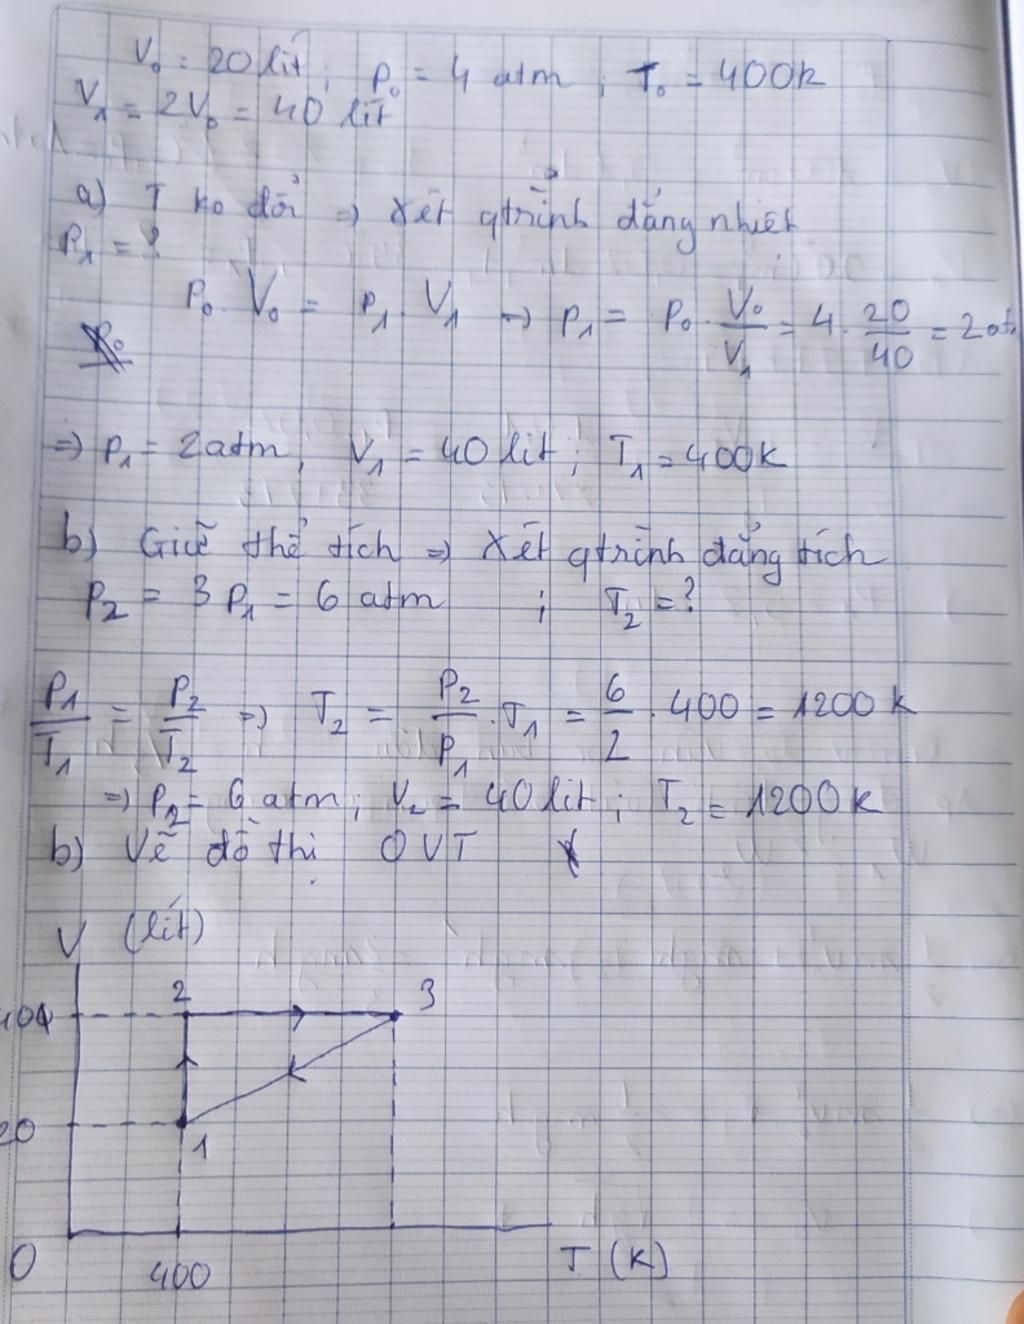 V₀ = 20 lít ; P₀ = 4 atm ; T₀ = 400K
V₁ = 2V₀ = 40 lít
a) T ko đổi => Xét qtrình đẳng nhiệt
P₁ = ?
P₀ . V₀ = P₁ V₁ => P₁ = P₀ . V₀/V₁ = 4 . 20/40 = 2 at
=> P₁ = 2 atm ; V₁ = 40 lít ; T₁ = 400K
b) Giữ thể tích => Xét qtrình đẳng tích
P₂ = 3 P₁ = 6 atm ; T₂ = ?
P₁/T₁ = P₂/T₂ => T₂ = P₂/P₁ . T₁ = 6/2 . 400 = 1200 K
=> P₂ = 6 atm ; V₂ = 40 lít ; T₂ = 1200 K
b) Vẽ đồ thị OVT
V (lít)
2 3
40
20
1
O 400 T (K)